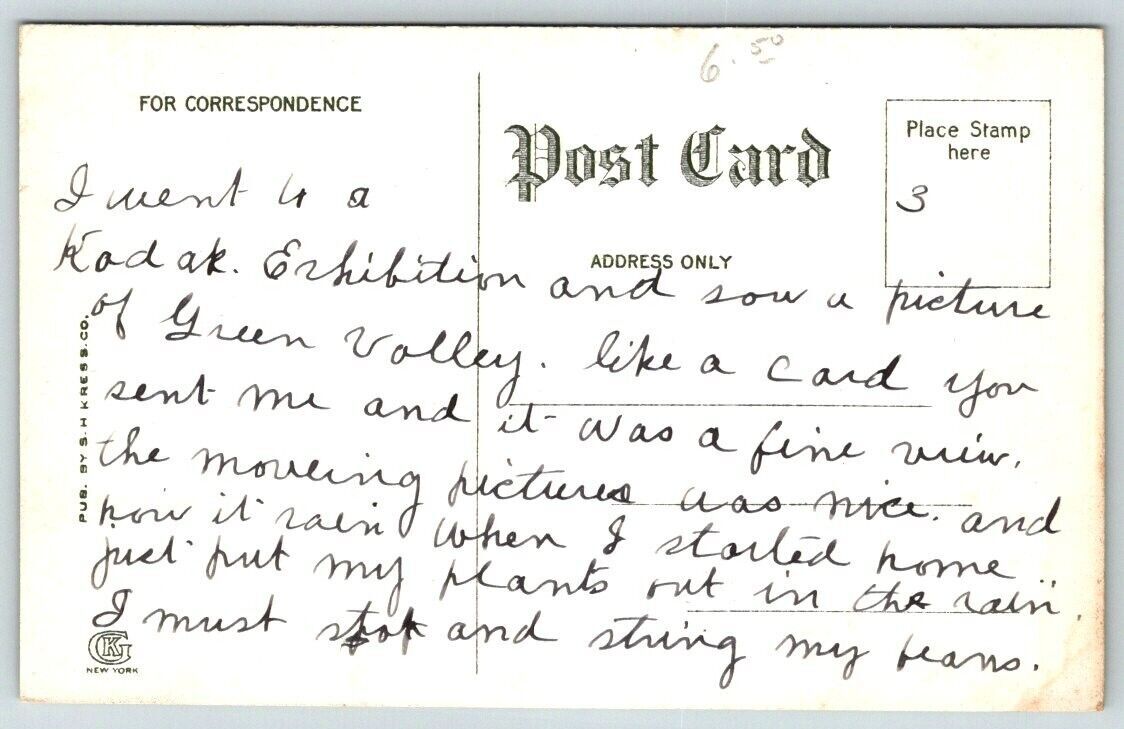 6.50
FOR CORRESPONDENCE
Post Card
Place Stamp
here
3
ADDRESS ONLY
I went to a
Kodak. Exhibition and sow a picture
of Green Volley. like a card you
sent me and it was a fine view.
the moveing pictures was nice. and
how it rain when I started home
just put my plants out in the rain.
I must stop and string my beans.
PUB. BY S. H. KRESS. CO.
KG
NEW YORK